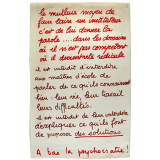 le meilleur moyen de
faire taire un instituteur
c'est de lui donner la
parole.... dans les domaines
où il n'est pas compétent
où il deviendra ridicule
il est interdit d'interdire
aux maîtres d'école de
parler de ce qu'ils connaissent
bien: leur vie, leur travail
leurs difficultés.
il est interdit de leur interdire
d'expliquer ce qu'ils font
de proposer des solutions
A bas la psychosratie!